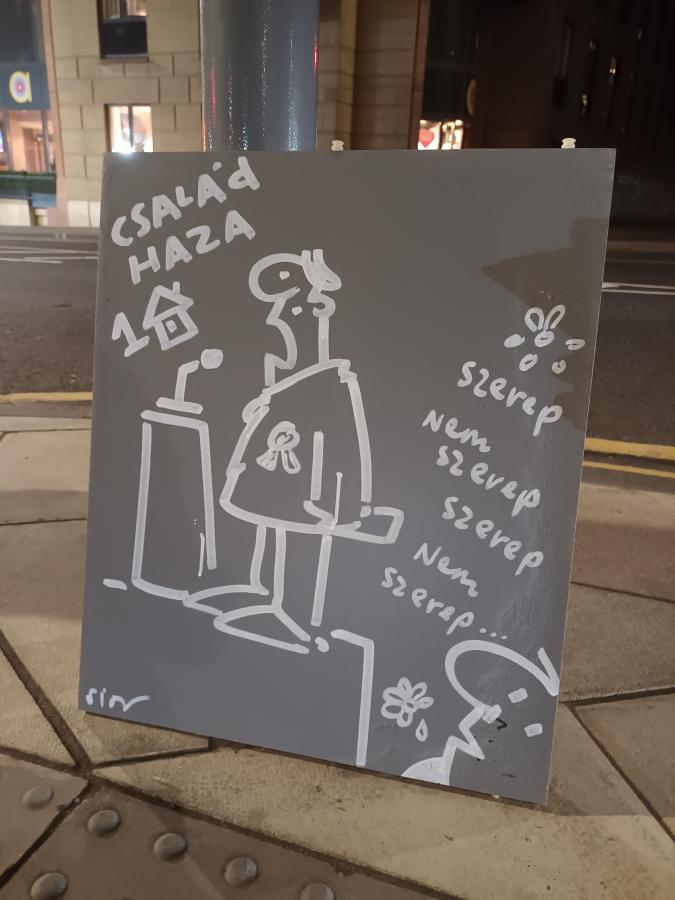 CSALÁd
HAZA
1
szerep
Nem
szerep
szerep
Nem
szerep...